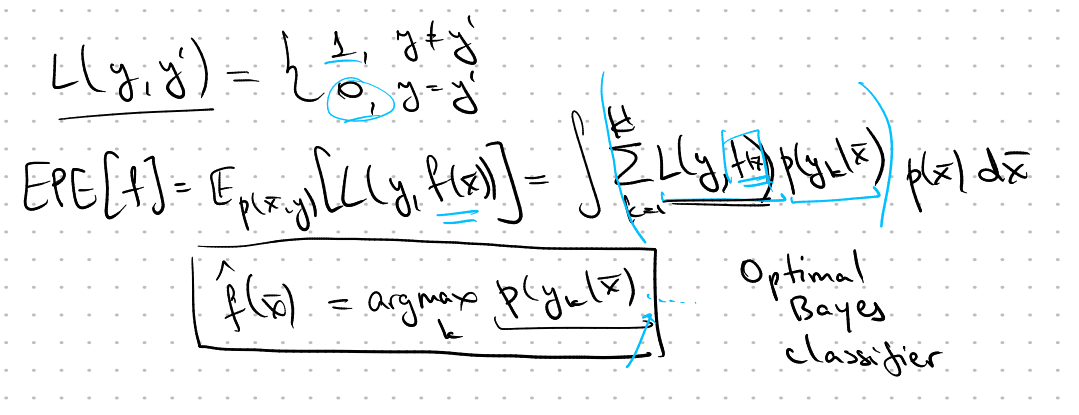 L(y, y') = { 1, y ≠ y'
0, y = y'
EPE[f] = E_{p(x̄,y)}[L(y, f(x̄))] = ∫ (∑_{k=1}^{K} L(y, f(x̄)) p(y_k|x̄)) p(x̄) dx̄
f̂(x̄) = argmax_k p(y_k|x̄)
Optimal
Bayes
classifier